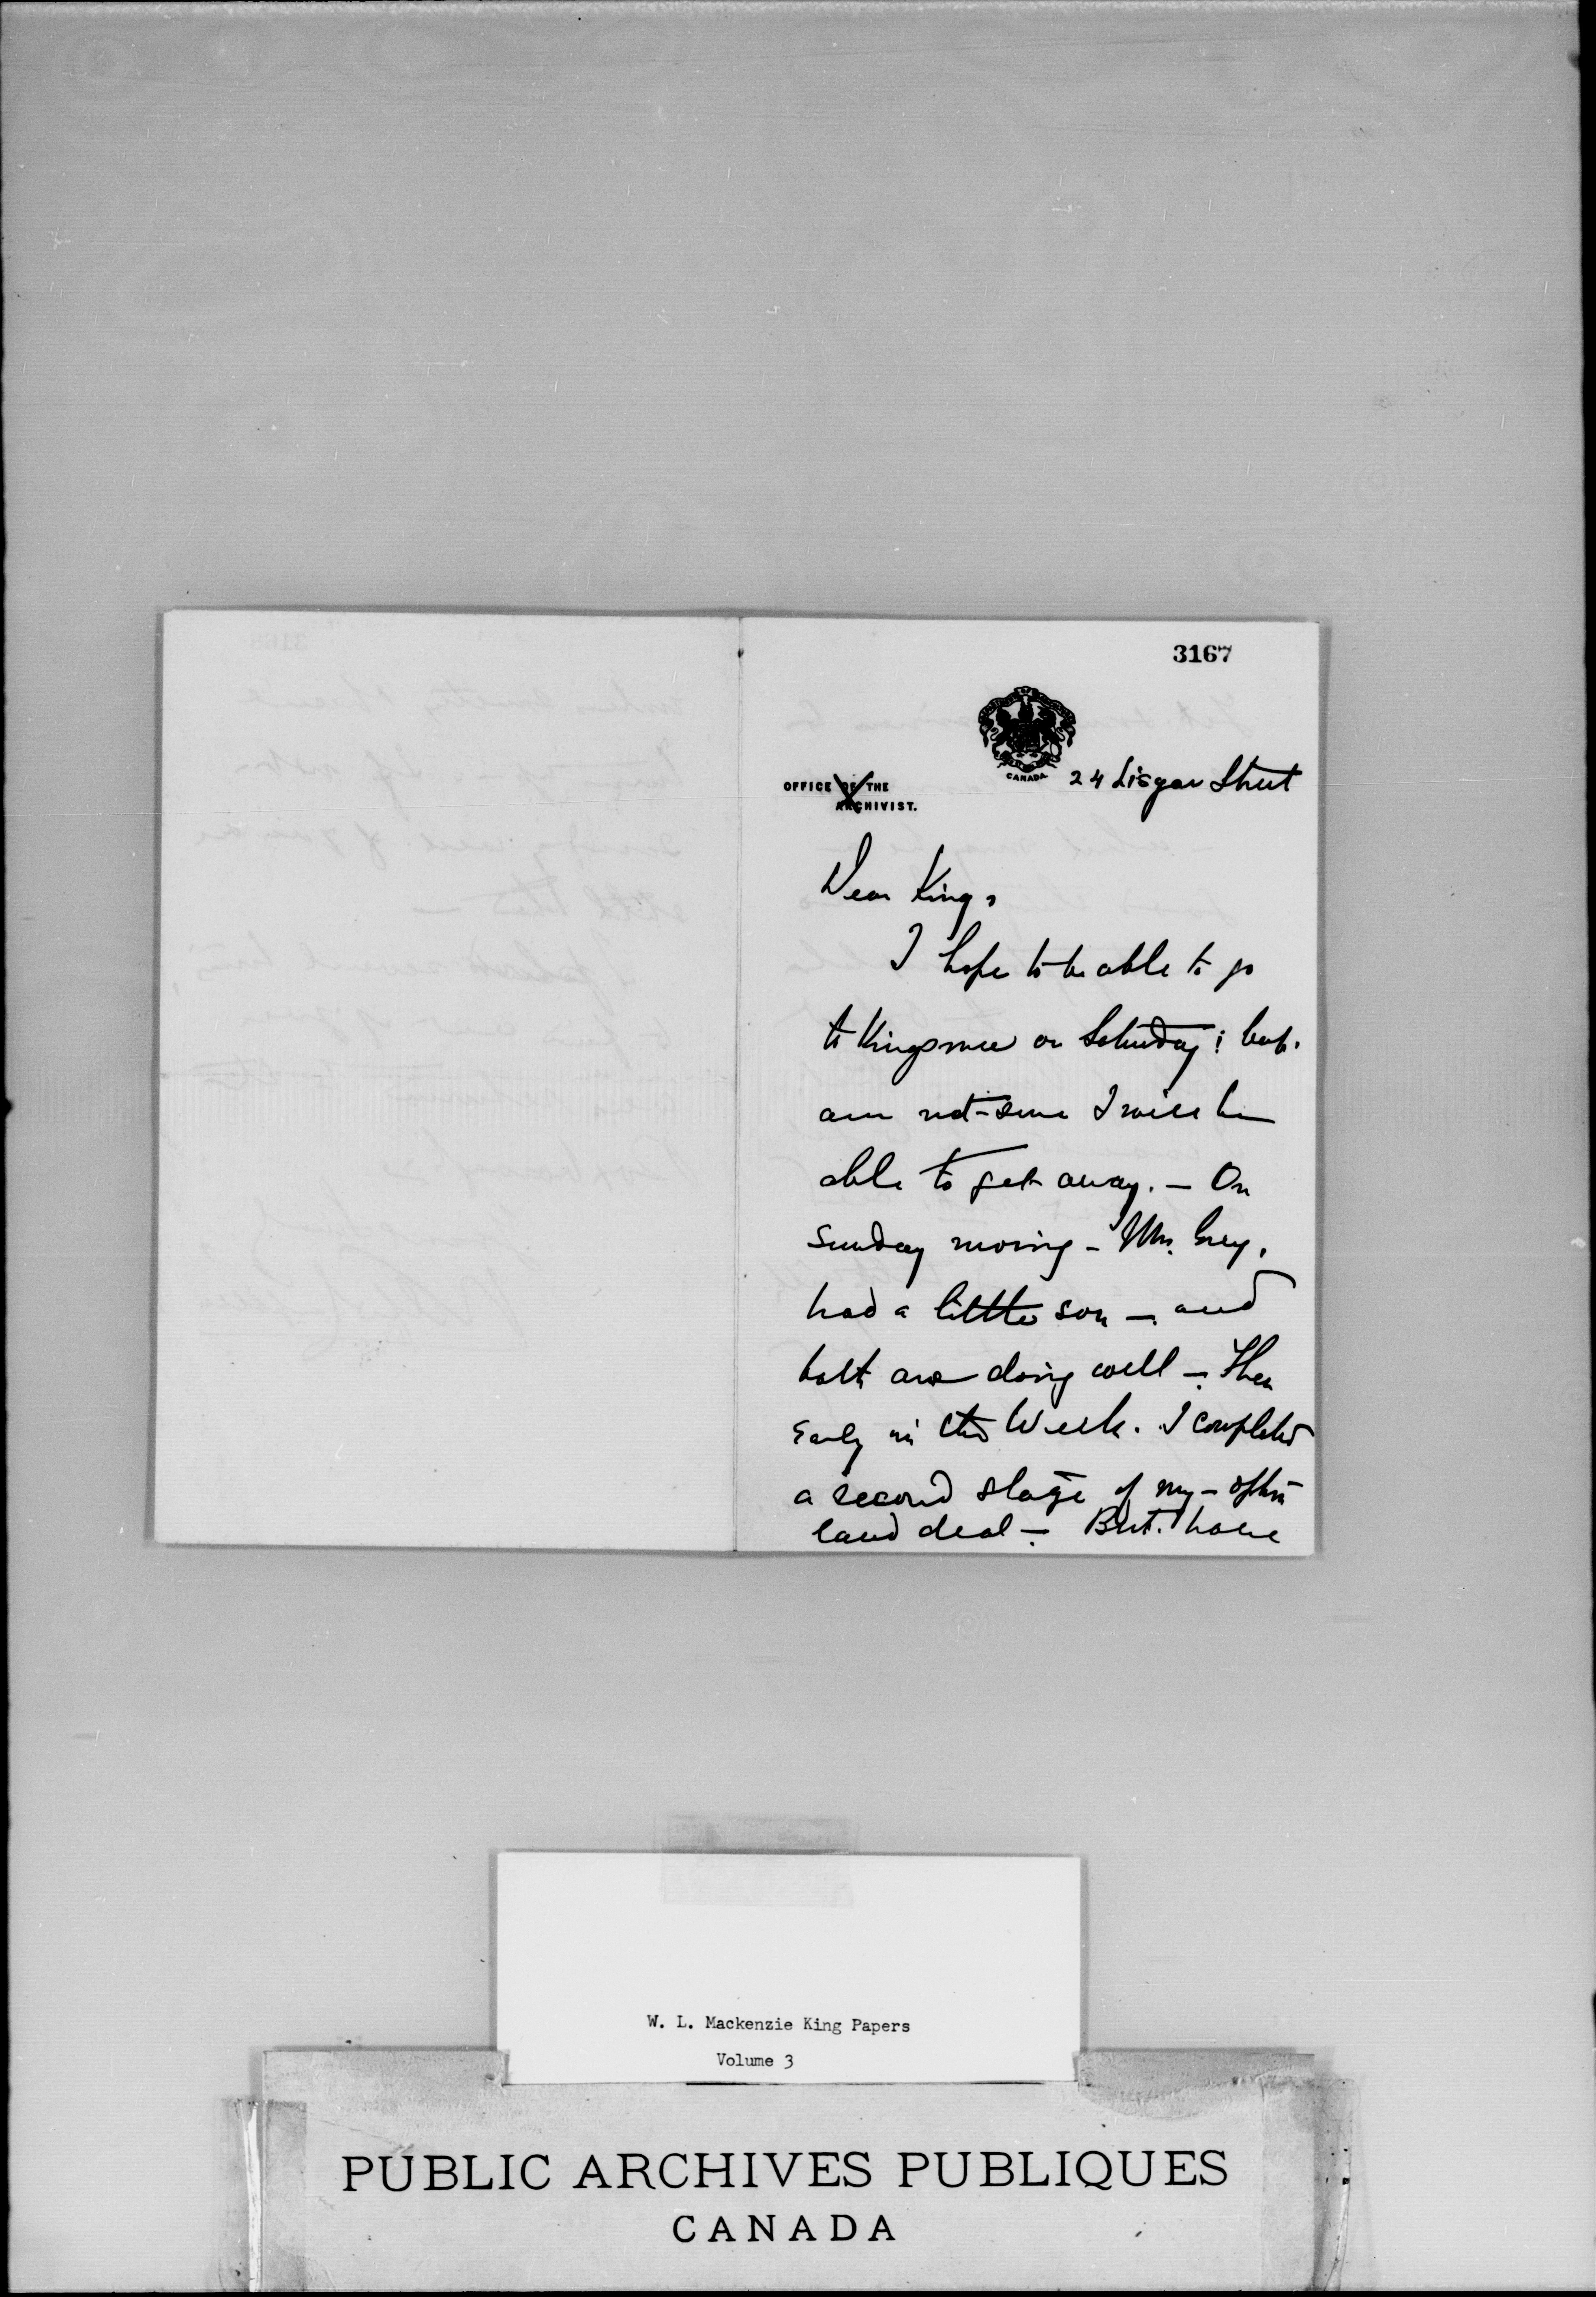 3167
CANADA
24 Lisgar Street
OFFICE OF THE
ARCHIVIST.
Dear King,
I hope to be able to go
to Kingsmere on Saturday; but.
am not sure I will be
able to get away. — On
Sunday morning — Mrs.
had a little son —. and
both are doing well —. Then
early in the Week. I completed
a second stage of my —
land deal —. But. I have
W. L. Mackenzie King Papers
Volume 3
PUBLIC ARCHIVES PUBLIQUES
CANADA